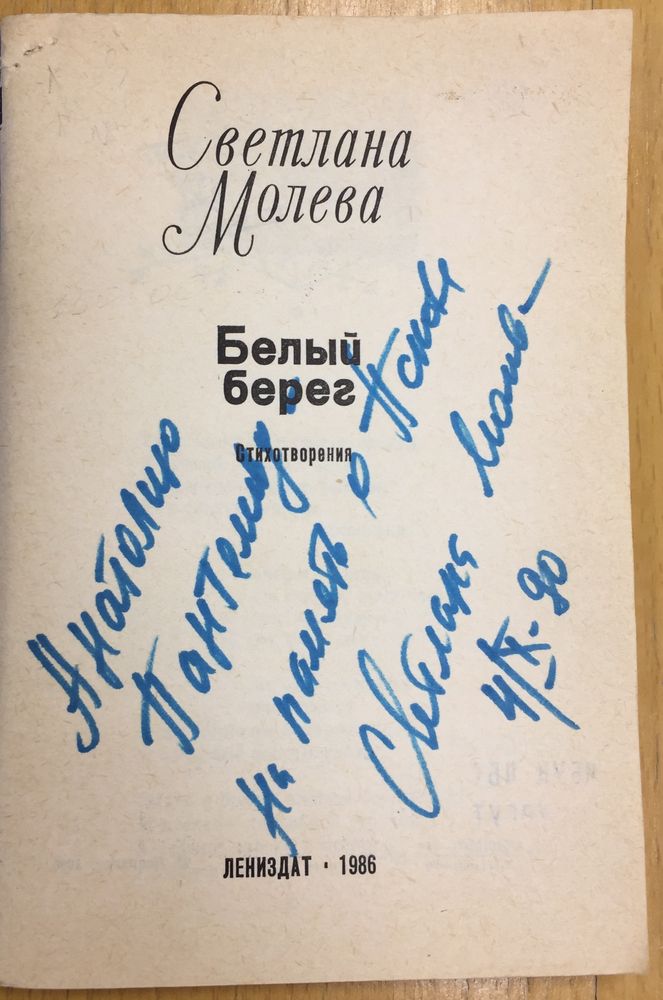 Светлана
Молева
Белый
берег
Стихотворения
Анатолию
На память о Пскове
Светлана
ЛЕНИЗДАТ · 1986